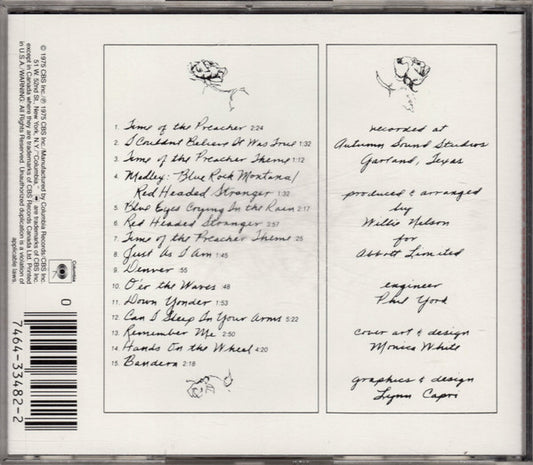 1. Time of the Preacher 2:24
2. I Couldn't Believe It Was True 1:32
3. Time of the Preacher Theme 1:12
4. Medley: "Blue Rock Montana/
Red Headed Stranger 1:32
5. Blue Eyes Crying In the Rain 2:17
6. Red Headed Stranger 3:57
7. Time of the Preacher Theme :25
8. Just As I Am 1:45
9. Denver :55
10. O'er the Waves :48
11. Down Yonder 1:53
12. Can I Sleep In Your Arms 5:22
13. Remember Me 2:50
14. Hands On the Wheel 4:20
15. Bandera 2:18
recorded at
Autumn Sound Studios
Garland, Texas
produced & arranged
by
Willie Nelson
for
Abbott Limited
engineer
Phil York
cover art & design
Monica White
graphics & design
Lynn Capri
© 1975 CBS Inc./℗ 1975 CBS Inc./Manufactured by Columbia Records/CBS Inc./
51 W. 52nd St., New York, N.Y./"Columbia," are trademarks of CBS Inc.
except in Canada where they are trademarks of CBS Records Canada Ltd. Printed
in U.S.A./WARNING: All Rights Reserved. Unauthorized duplication is a violation of
applicable laws.
Columbia
0
7464-33482-2